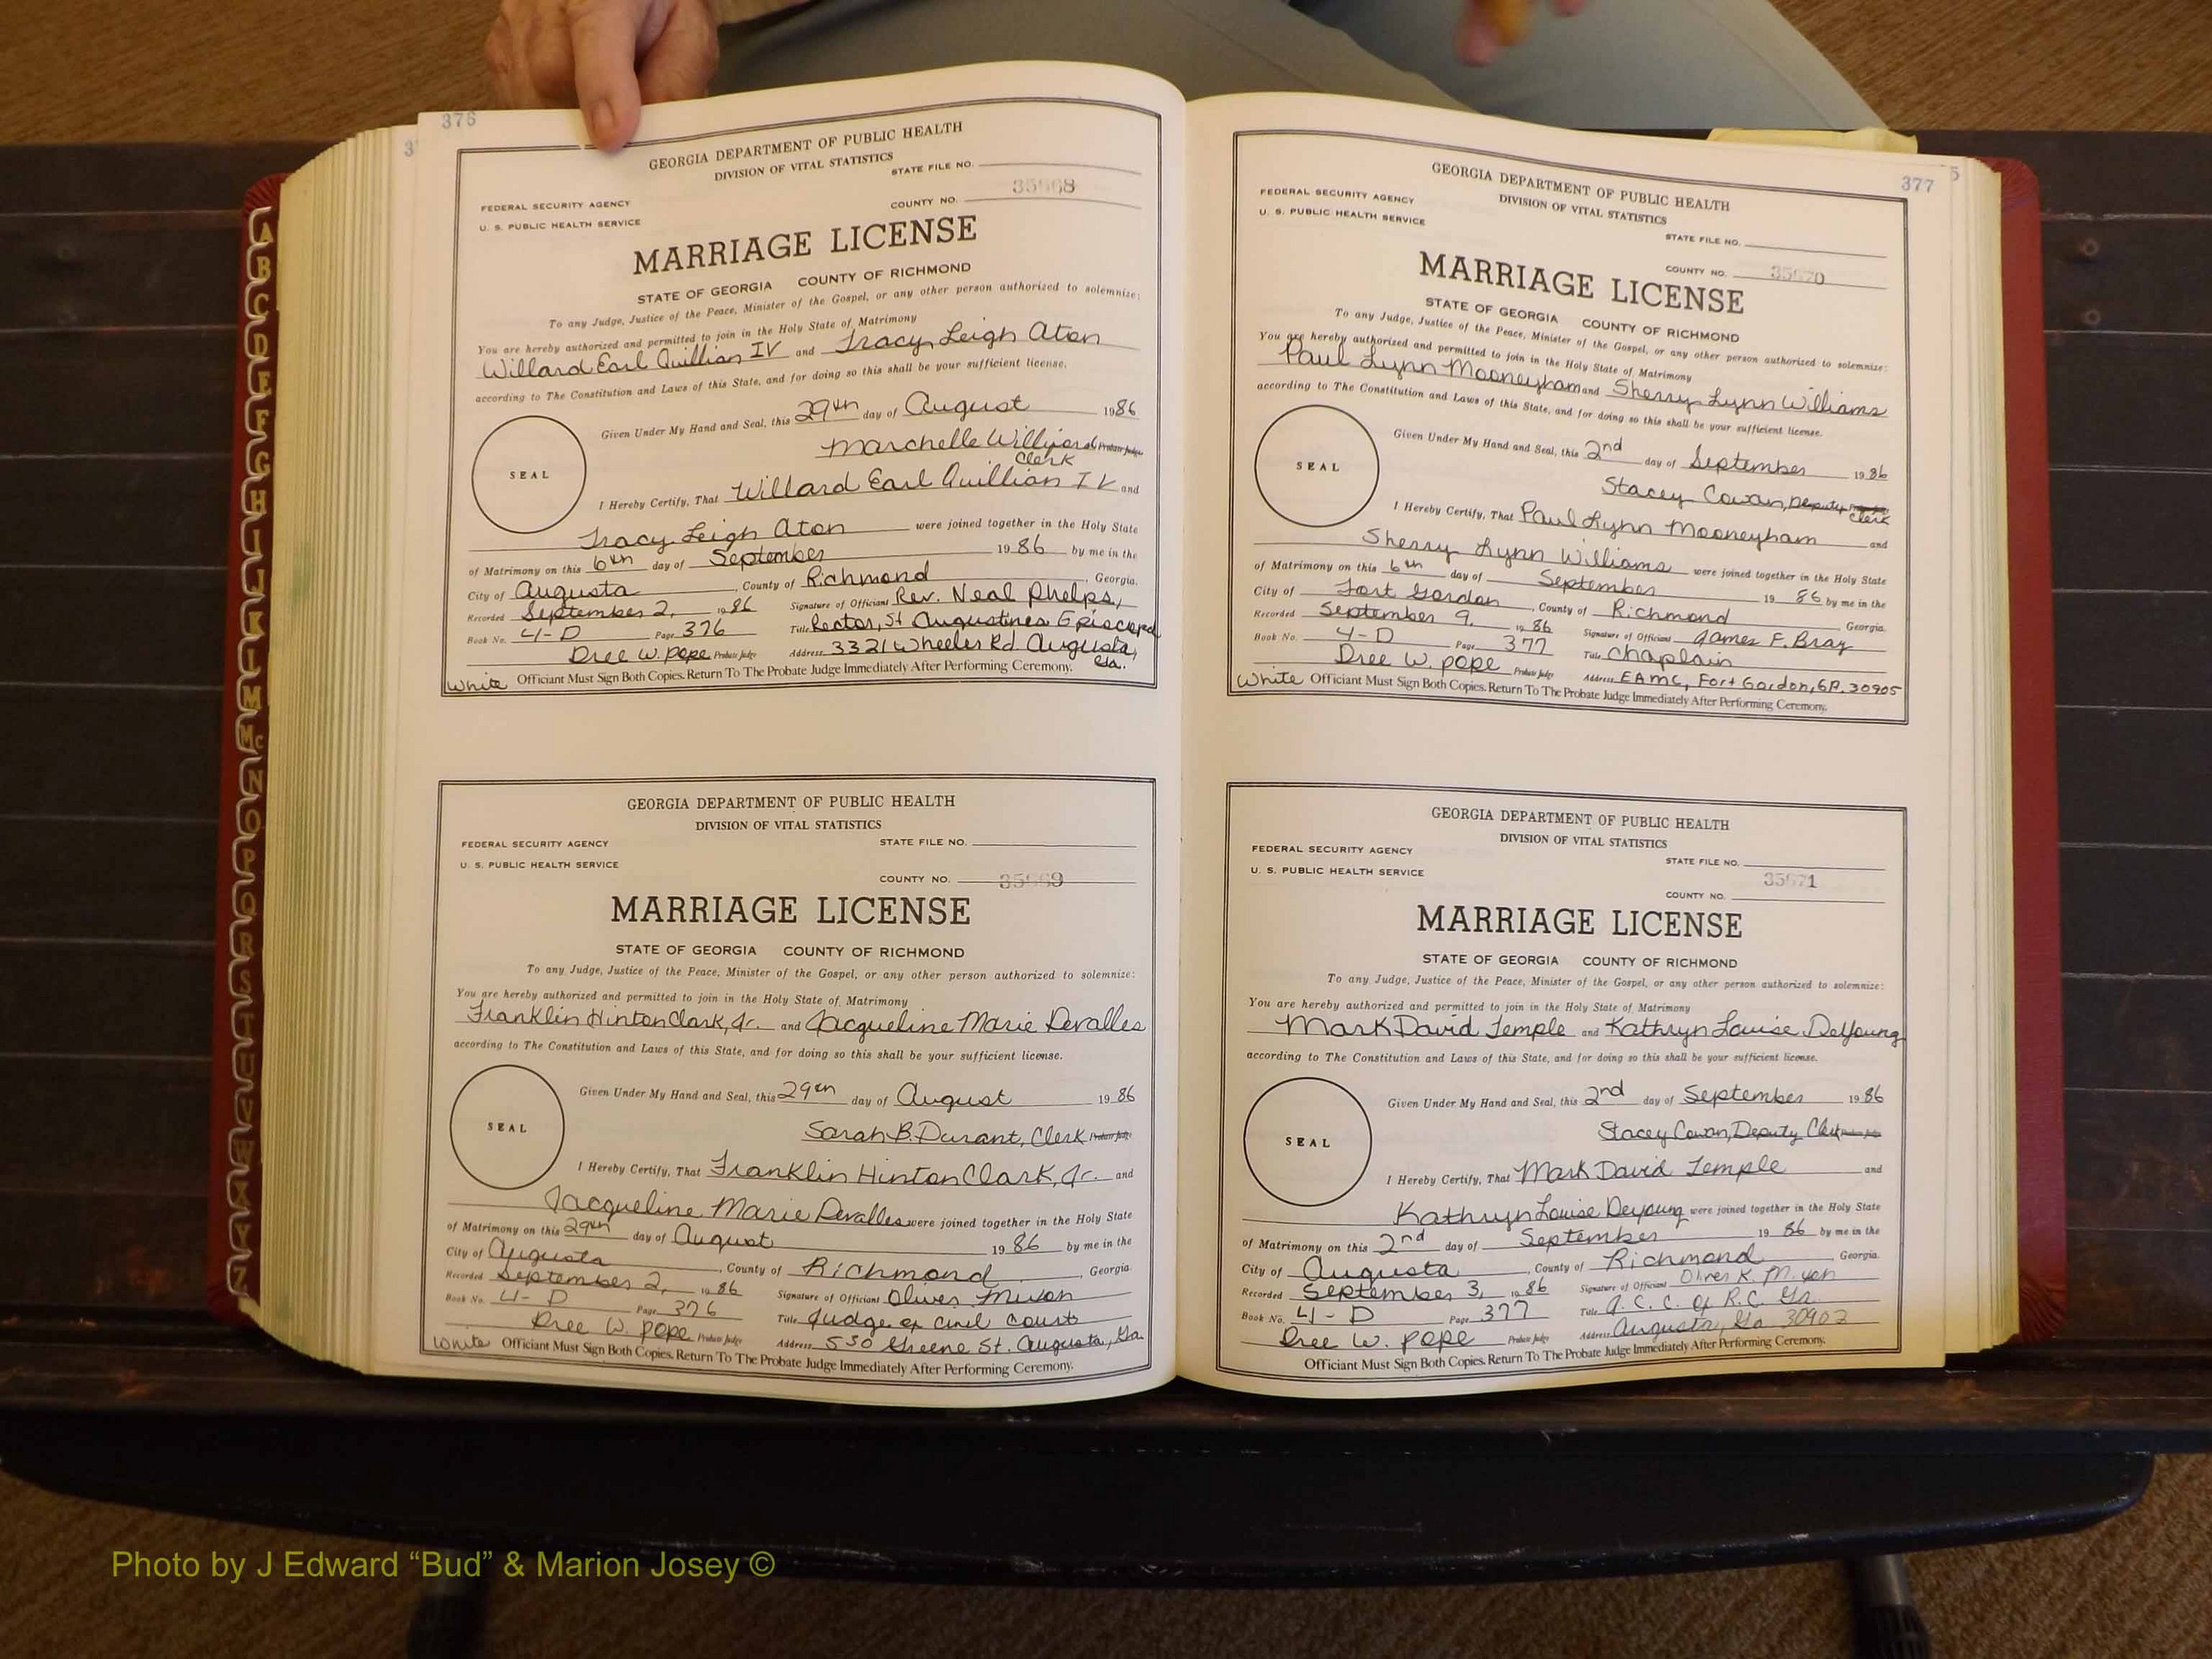 376
GEORGIA DEPARTMENT OF PUBLIC HEALTH
DIVISION OF VITAL STATISTICS
STATE FILE NO.
FEDERAL SECURITY AGENCY
COUNTY NO. 35668
U. S. PUBLIC HEALTH SERVICE
MARRIAGE LICENSE
STATE OF GEORGIA COUNTY OF RICHMOND
To any Judge, Justice of the Peace, Minister of the Gospel, or any other person authorized to solemnize:
You are hereby authorized and permitted to join in the Holy State of Matrimony
Willard Earl Quillian IV and Tracy Leigh Aton
according to The Constitution and Laws of this State, and for doing so this shall be your sufficient license.
Given Under My Hand and Seal, this 29th day of August 1986
Marchelle Probate Judge
Clerk
SEAL
I Hereby Certify, That Willard Earl Quillian IV and
Tracy Leigh Aton were joined together in the Holy State
of Matrimony on this 6th day of September 1986 by me in the
City of Augusta, County of Richmond, Georgia.
Recorded September 2, 1986 Signature of Officiant Rev. Neal Phelps,
Book No. 4-D Page 376 Title Rector, St Augustines Episcopal
Dree W. Pope Probate Judge Address 3321 Wheeler Rd Augusta, Ga.
White Officiant Must Sign Both Copies. Return To The Probate Judge Immediately After Performing Ceremony.
GEORGIA DEPARTMENT OF PUBLIC HEALTH
DIVISION OF VITAL STATISTICS
FEDERAL SECURITY AGENCY STATE FILE NO.
U. S. PUBLIC HEALTH SERVICE
COUNTY NO. 35669
MARRIAGE LICENSE
STATE OF GEORGIA COUNTY OF RICHMOND
To any Judge, Justice of the Peace, Minister of the Gospel, or any other person authorized to solemnize:
You are hereby authorized and permitted to join in the Holy State of Matrimony
Franklin Hinton Clark, Jr. and Jacqueline Marie Devalles
according to The Constitution and Laws of this State, and for doing so this shall be your sufficient license.
Given Under My Hand and Seal, this 29th day of August 1986
SEAL
Sarah B. Durant, Clerk Probate Judge
I Hereby Certify, That Franklin Hinton Clark, Jr. and
Jacqueline Marie Devalles were joined together in the Holy State
of Matrimony on this 29th day of August 1986 by me in the
City of Augusta, County of Richmond, Georgia.
Recorded September 2, 1986 Signature of Officiant Oliver Mixon
Book No. 4-D Page 376 Title Judge of Civil Courts
Dree W. Pope Probate Judge Address 530 Greene St. Augusta, Ga
White Officiant Must Sign Both Copies. Return To The Probate Judge Immediately After Performing Ceremony.
377
GEORGIA DEPARTMENT OF PUBLIC HEALTH
DIVISION OF VITAL STATISTICS
FEDERAL SECURITY AGENCY
U. S. PUBLIC HEALTH SERVICE
STATE FILE NO.
COUNTY NO. 35670
MARRIAGE LICENSE
STATE OF GEORGIA COUNTY OF RICHMOND
To any Judge, Justice of the Peace, Minister of the Gospel, or any other person authorized to solemnize:
You are hereby authorized and permitted to join in the Holy State of Matrimony
Paul Lynn Mooneyham and Sherry Lynn Williams
according to The Constitution and Laws of this State, and for doing so this shall be your sufficient license.
Given Under My Hand and Seal, this 2nd day of September 1986
SEAL
Stacey Cowan, Deputy Clerk
I Hereby Certify, That Paul Lynn Mooneyham and
Sherry Lynn Williams were joined together in the Holy State
of Matrimony on this 6th day of September 1986 by me in the
City of Fort Gordon, County of Richmond Georgia.
Recorded September 9, 1986 Signature of Officiant James F. Bray
Book No. 4-D Page 377 Title Chaplain
Dree W. Pope Probate Judge Address EAMC, Fort Gordon, GA. 30905
White Officiant Must Sign Both Copies. Return To The Probate Judge Immediately After Performing Ceremony.
GEORGIA DEPARTMENT OF PUBLIC HEALTH
DIVISION OF VITAL STATISTICS
FEDERAL SECURITY AGENCY
STATE FILE NO.
U. S. PUBLIC HEALTH SERVICE
COUNTY NO. 35671
MARRIAGE LICENSE
STATE OF GEORGIA COUNTY OF RICHMOND
To any Judge, Justice of the Peace, Minister of the Gospel, or any other person authorized to solemnize:
You are hereby authorized and permitted to join in the Holy State of Matrimony
Mark David Temple and Kathryn Louise DeYoung
according to The Constitution and Laws of this State, and for doing so this shall be your sufficient license.
Given Under My Hand and Seal, this 2nd day of September 1986
Stacey Cowan, Deputy Clerk
SEAL
I Hereby Certify, That Mark David Temple and
Kathryn Louise Deyoung were joined together in the Holy State
of Matrimony on this 2nd day of September 1986 by me in the
City of Augusta, County of Richmond, Georgia.
Recorded September 3, 1986 Signature of Officiant Oliver K. Mixon
Book No. 4-D Page 377 Title J. C. C. of R.C. Ga.
Dree W. Pope Probate Judge Address Augusta, Ga 30902
Officiant Must Sign Both Copies. Return To The Probate Judge Immediately After Performing Ceremony.
A
B
C
D
E
F
G
H
I
J
K
L
M
Mc
N
O
P
Q
R
S
T
U
V
W
X
Y
Z
Photo by J Edward “Bud” & Marion Josey ©